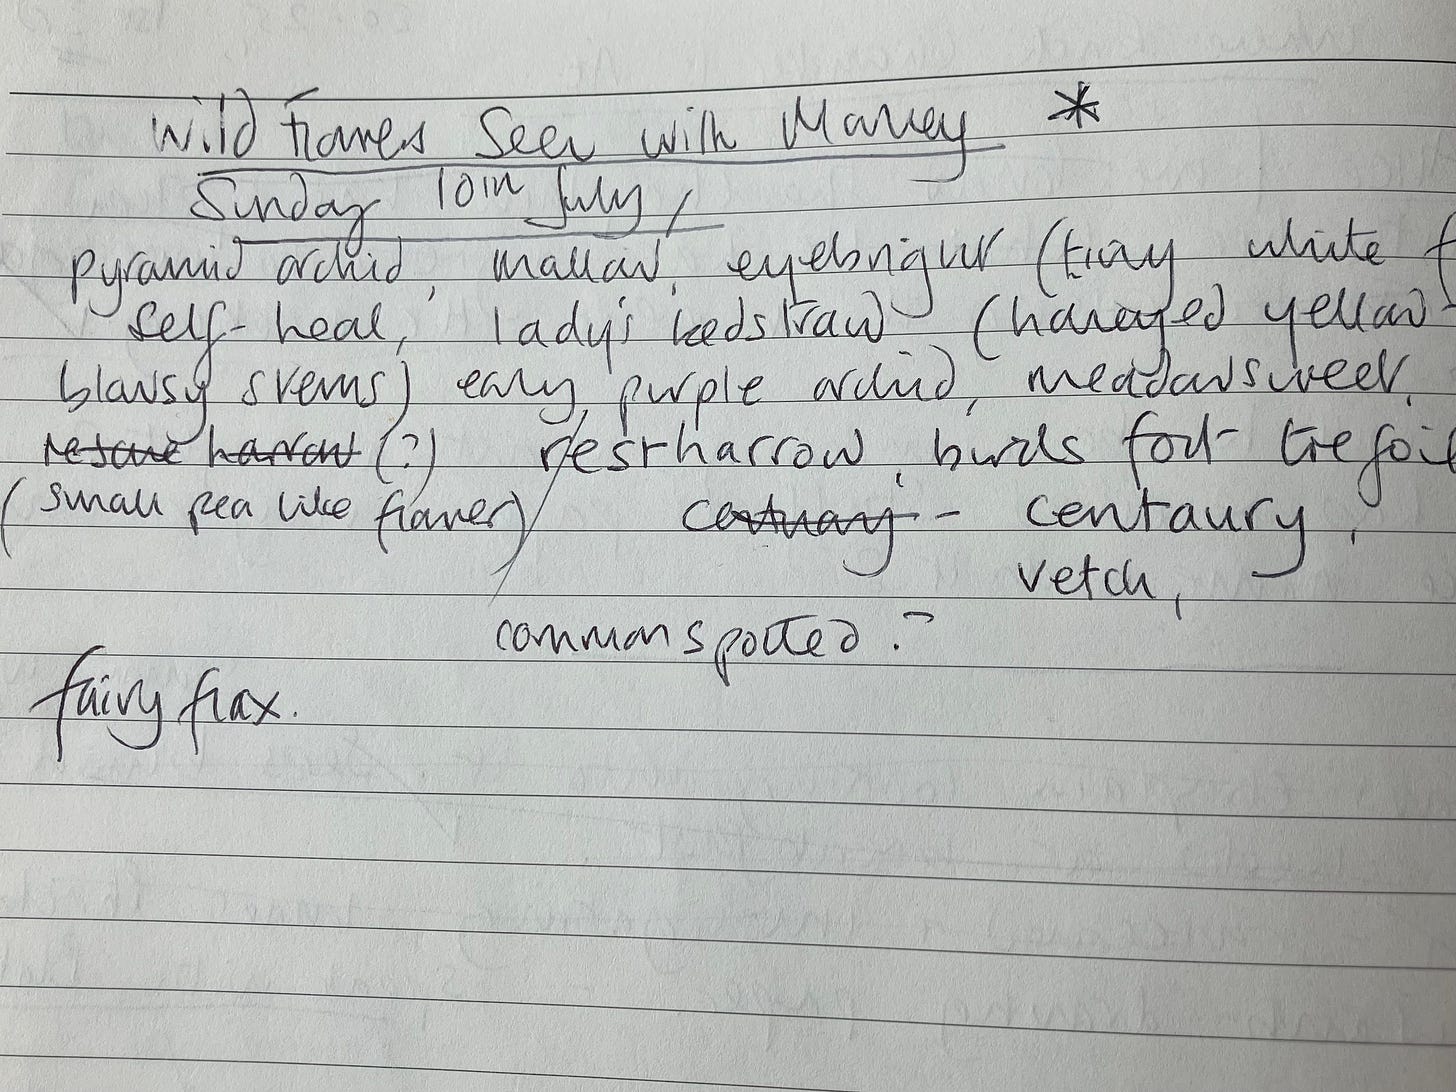 Wild flowers seen with Maney *
Sunday 10th July,
pyramid orchid, mallow, eyebright (tiny white f
self-heal, lady's bedstraw (honeyed yellow -
blowsy stems) early purple orchid, meadowsweet,
(?) restharrow, birds foot trefoil
(small pea like flower) - centaury,
vetch,
common spotted ?
fairy flax.